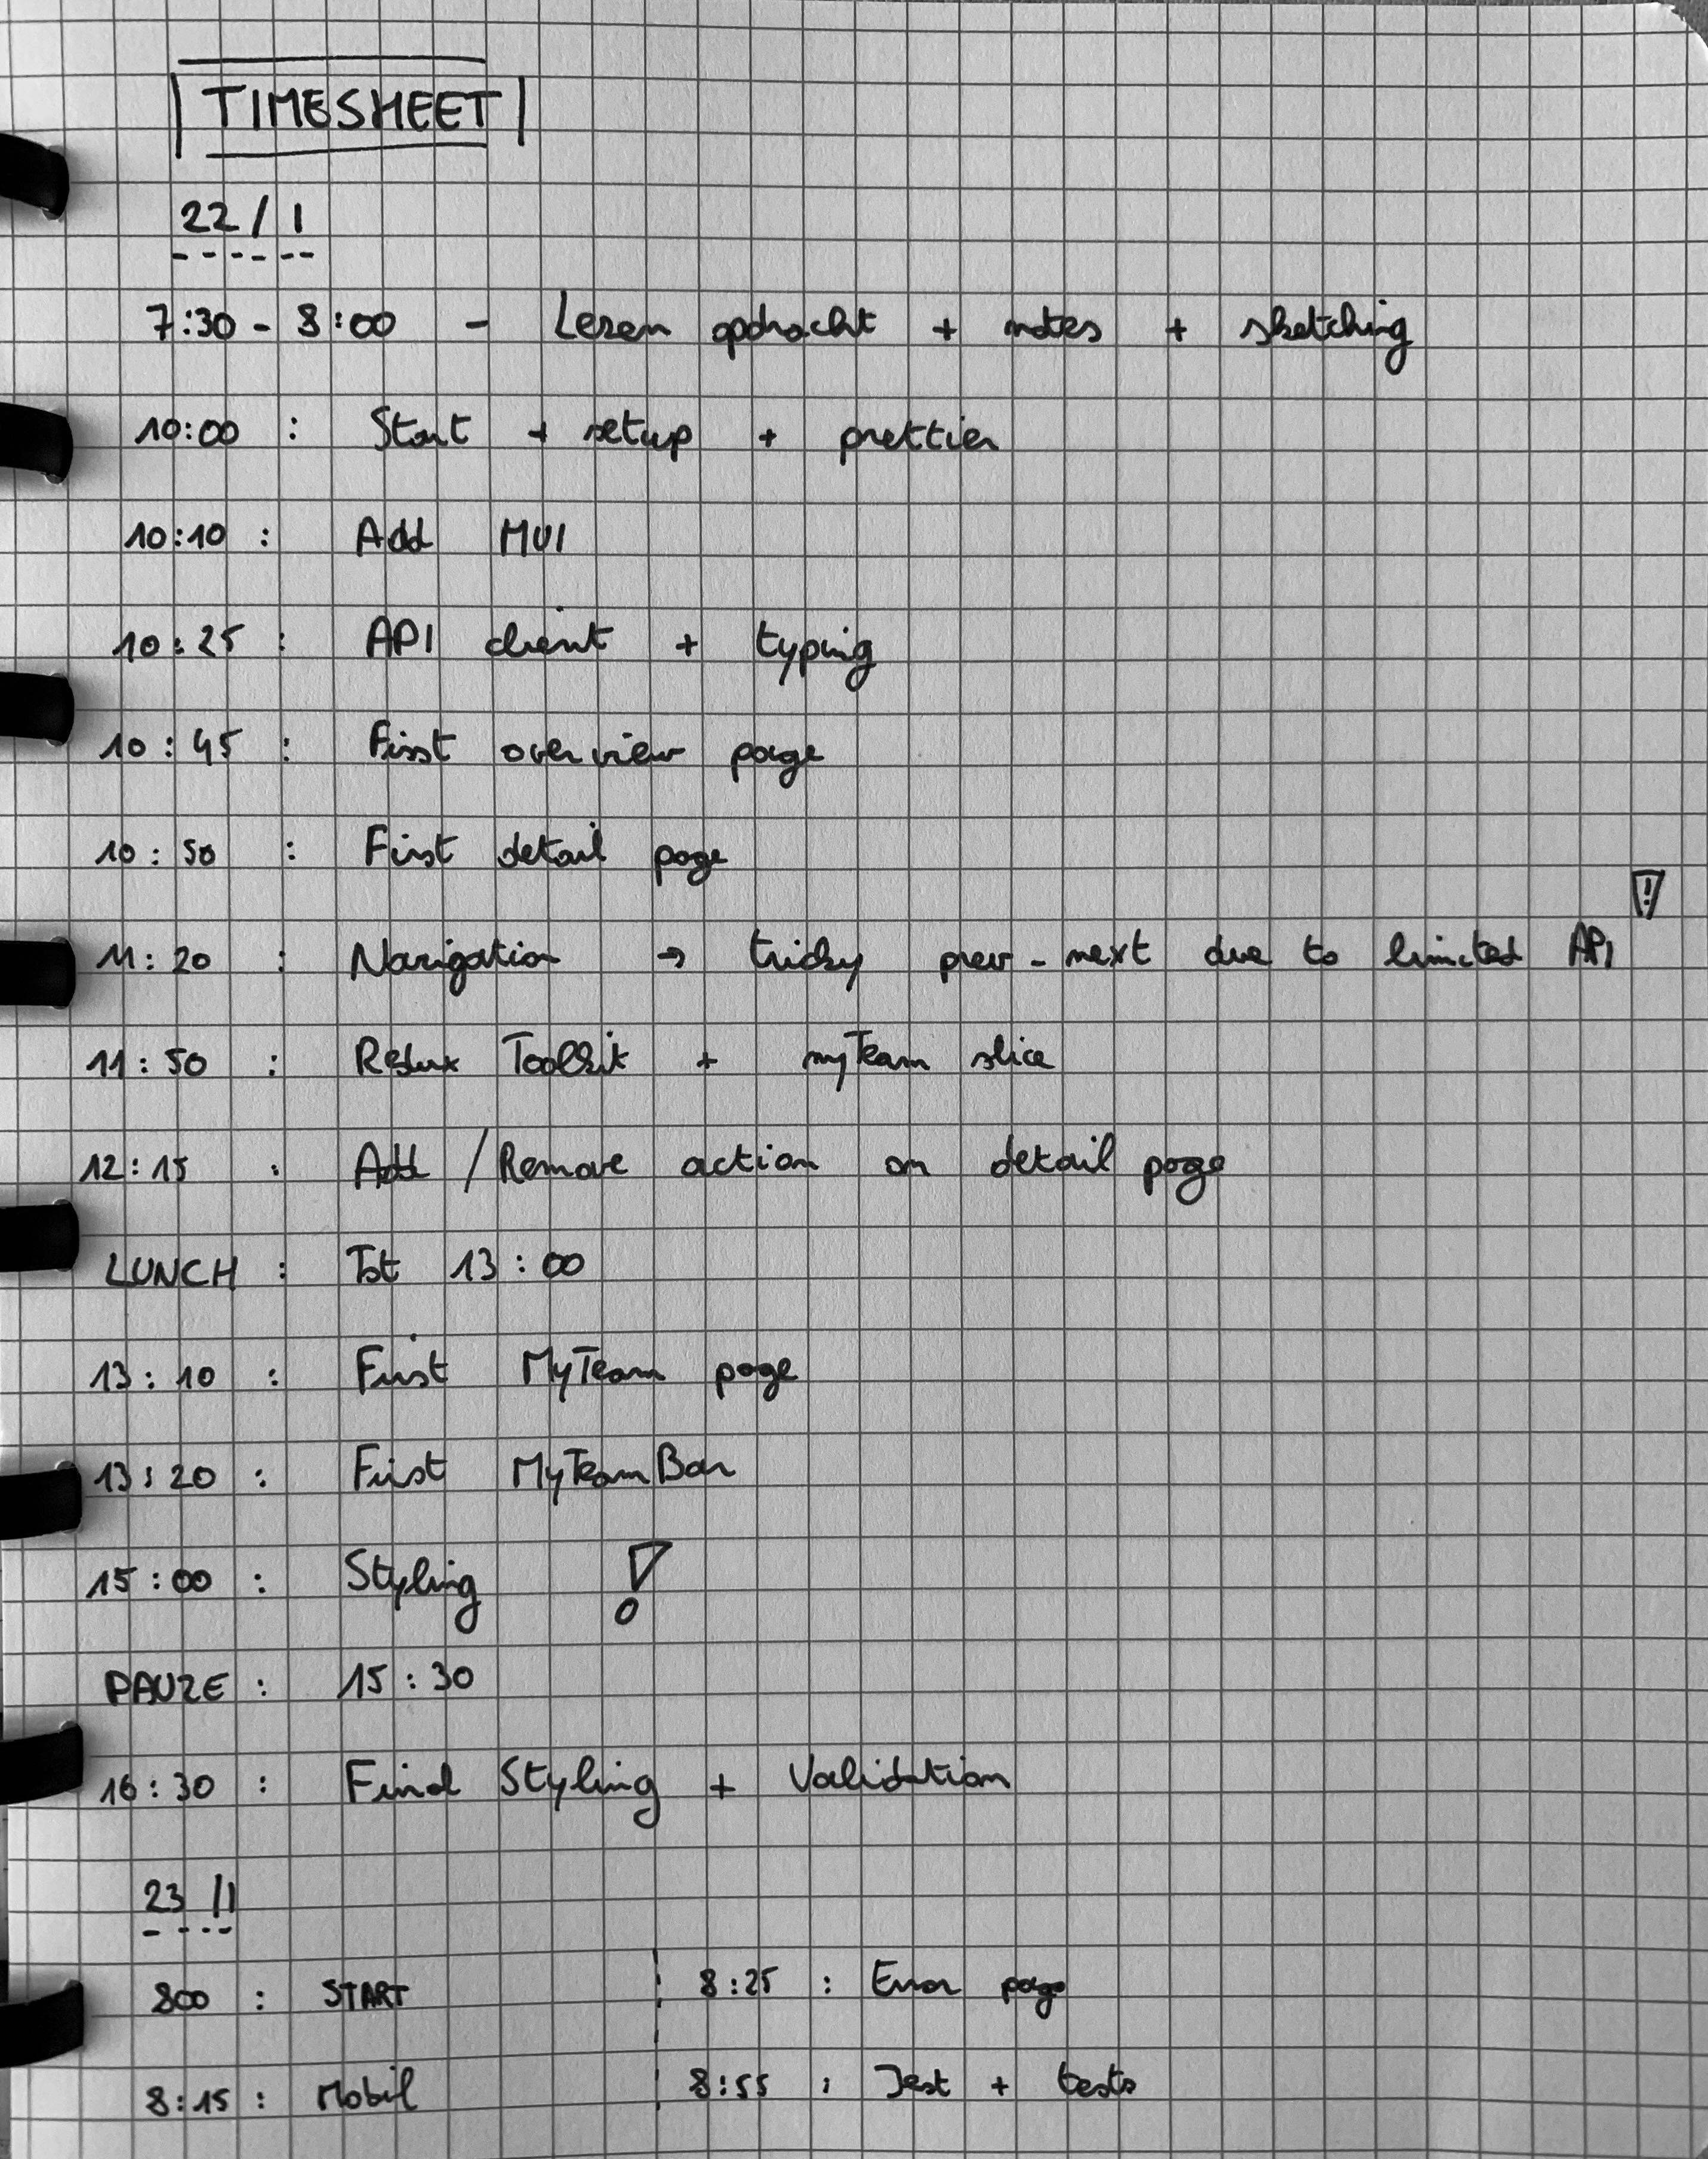 TIMESHEET
22/1
7:30 - 8:00 - Lezen opdracht + notes + sketching
10:00 : Start + setup + prettier
10:10 : Add MUI
10:25 : API client + typing
10:45 : First overview page
10:50 : First detail page
11:20 : Navigation → tricky prev-next due to limited API !
11:50 : Redux Toolkit + myTeam slice
12:15 : Add / Remove action on detail page
LUNCH : Tot 13:00
13:10 : First MyTeam page
13:20 : First MyTeamBar
15:00 : Styling !
PAUZE : 15:30
16:30 : Final Styling + Validation
23/1
800 : START
8:15 : Mobil
8:25 : Error page
8:55 : Jest + tests